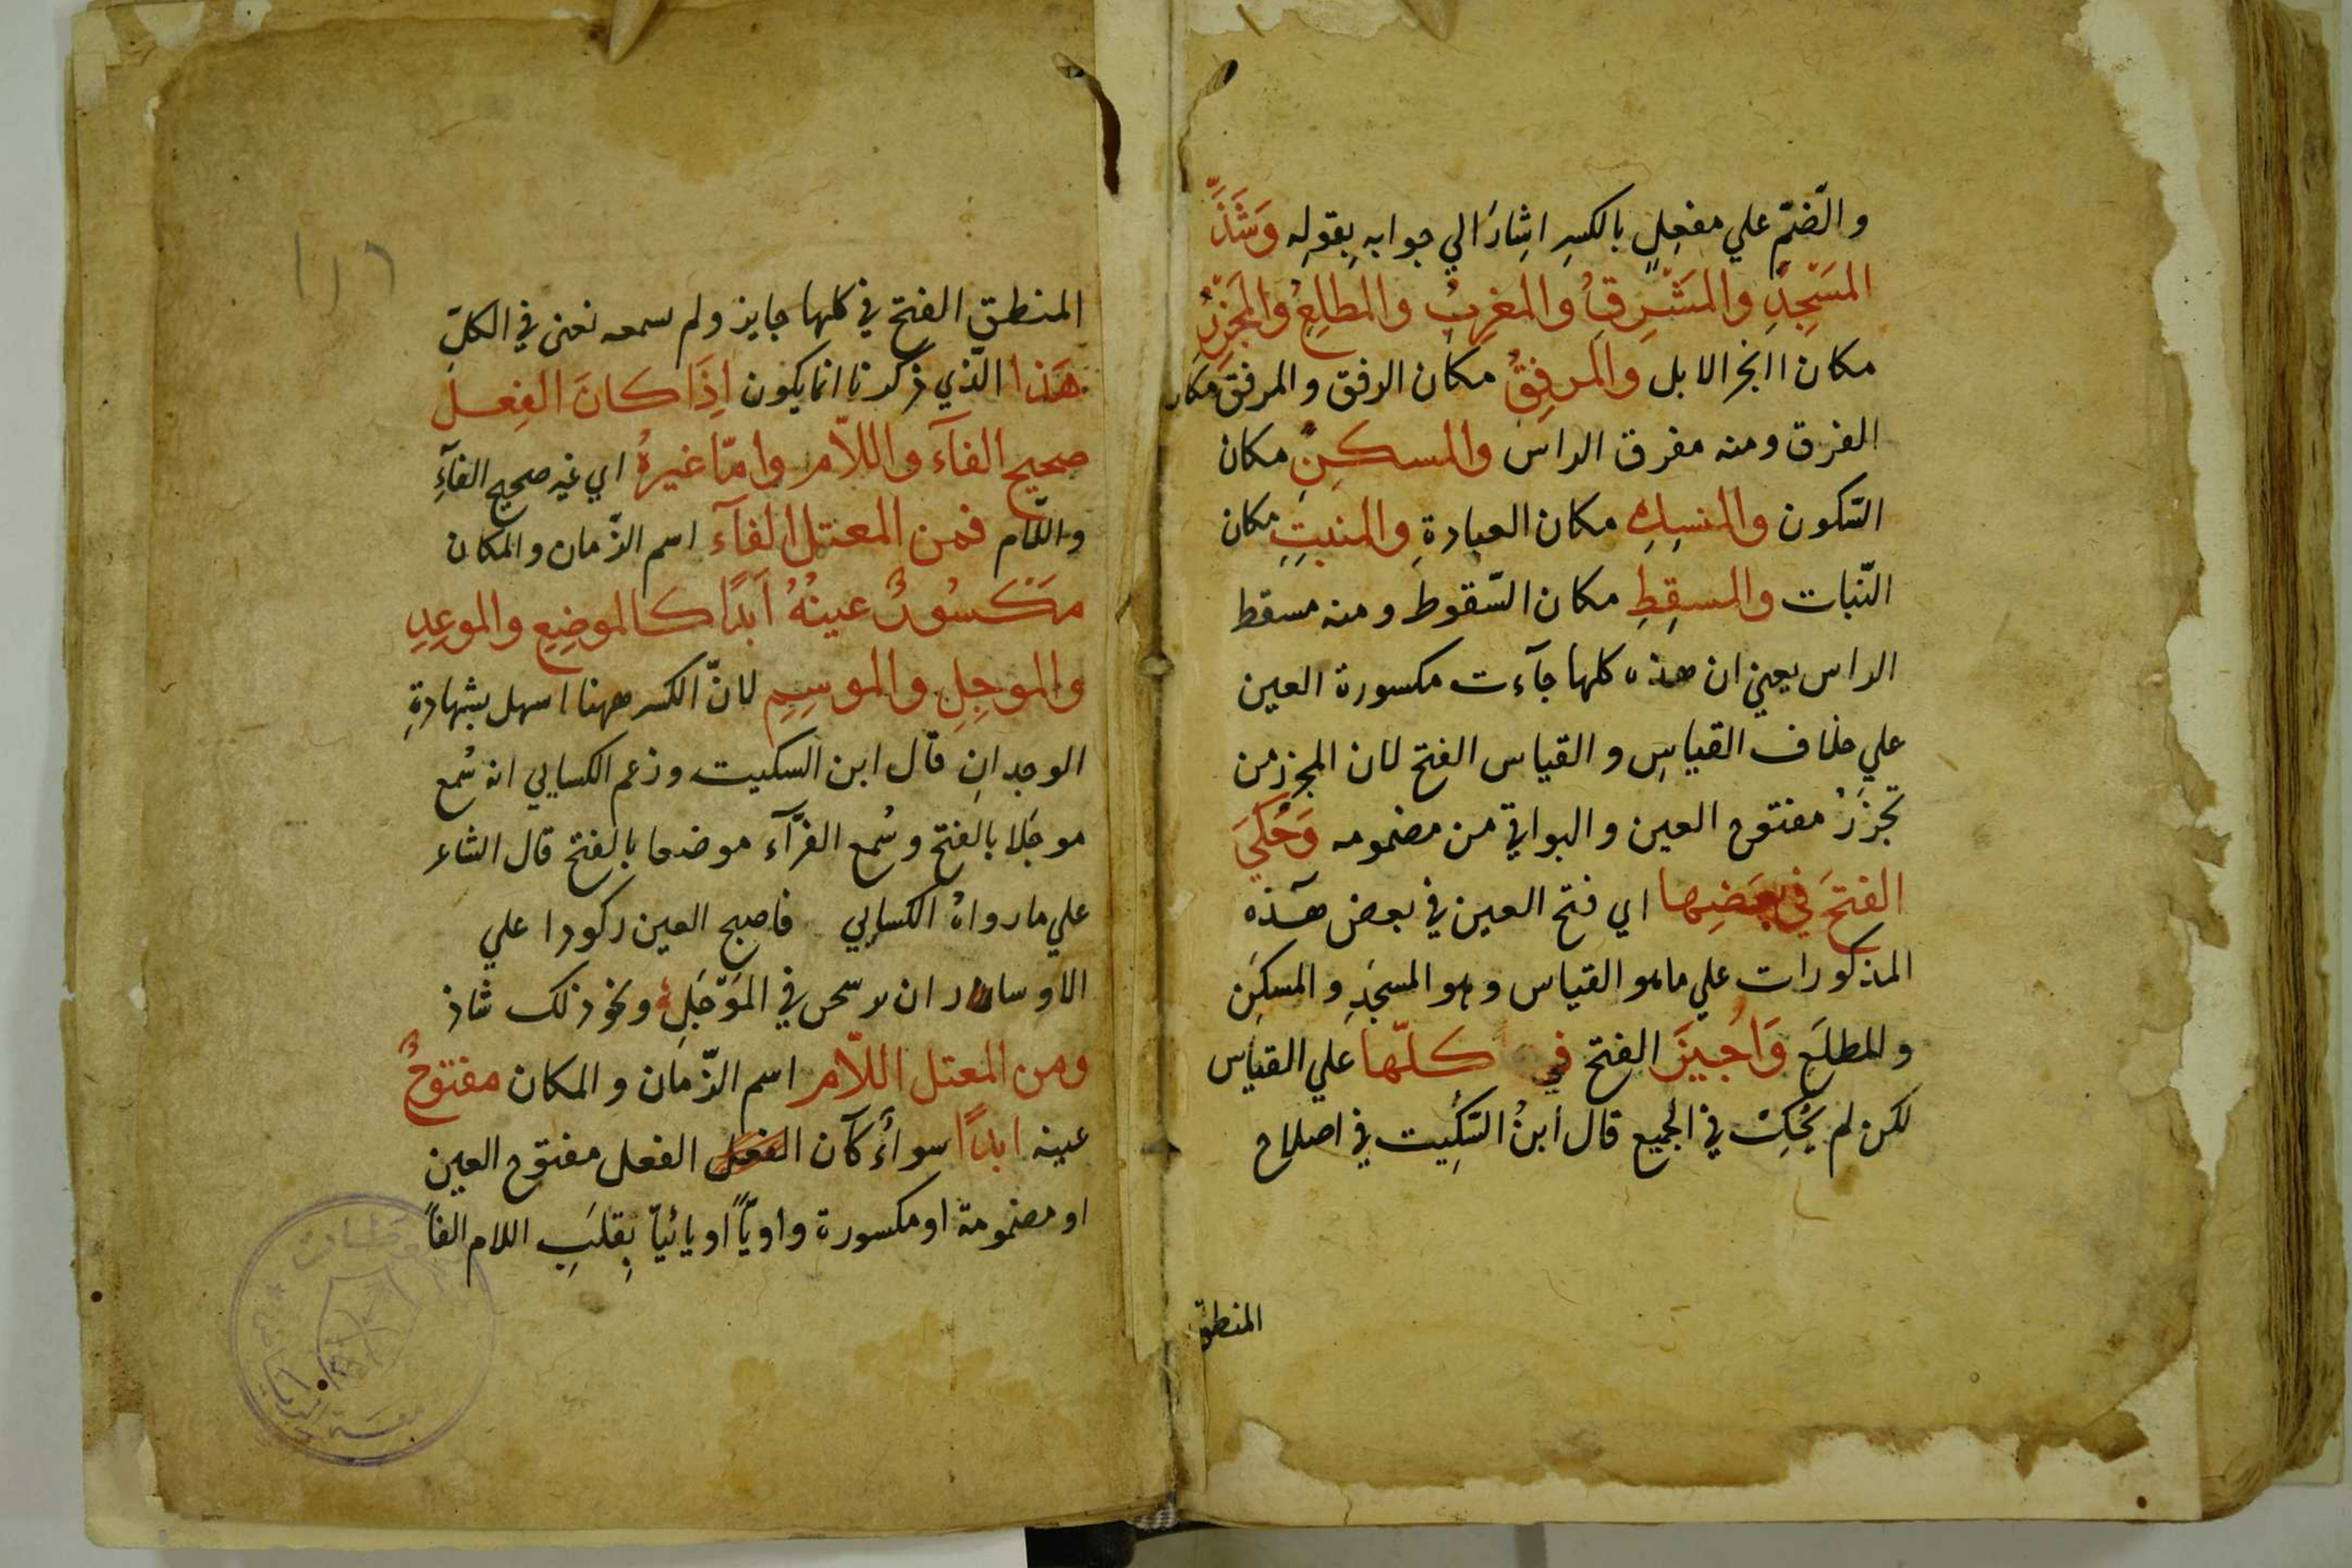 والضّمّ علي مفعِلٍ بالكسرِ اشارَ الي جوابه بِقولِه وَشَذَّ
المَسْجِدِ والمَشْرِقُ والمغرِبُ والمطلِعُ والمَجْزِرُ
مكان الجزر الابل والمرفِقُ مكان الرفق والمرفق مكان
الفرق ومنه مفرق الراس والمسكِنِ مكان
السّكون والمنسِكِ مكان العبادةِ والمنبِتِ مكان
النّبات والمسقِطِ مكان السّقوط ومنه مسقط
الراس يعني ان هذه كلها جآءت مكسورة العين
علي خلاف القياسِ والقياس الفتح لان المجزر من
تجزَرُ مفتوح العين والبواقي من مضمومه وَحُكَيَ
الفتحَ في بعَضِها اي فتح العين في بعض هٓذه
المذكورات علي ما هو القياس وهو المسجَدِ والمسكَن
والمطلَع وَاُجيزَ الفتح في كلّها علي القياس
لكن لم يُحْكِ في الجميع قال ابنُ السّكِيت في اصلاح
المنطق
١١٦
المنطقِ الفتح في كلها جايز ولم سمعه نعنى في الكلّ
هَذا الّذي ذكرنا انما يكون اِذَا كانَ الفِعل
صحيح الفآء واللاّم وامّا غيرهُ اي غير صحيح الفآءِ
واللّام فمن المعتل الفآء اسم الزّمان والمكان
مَكسُورٌ عينُهُ اَبدًا كالموضِعِ والموعِدِ
والموجِلِ والموسِمِ لانّ الكسر ههنا اسهل بشهادةِ
الوجدانِ قال ابن السكيت وزعم الكسايي انه سُمع
موجَلا بالفتح وسُمع الفرّآء موضعا بالفتح قال الشاعر
علي ما رواهُ الكسايي فاصبح العين ركودا علي
الاوسار ان سحں في المَوْجَلِ ونحو ذلك شاذ
ومن المعتل اللاّم اسم الزّمان والمكان مفتوحٌ
عينه ابدًا سواءٌ كآن الفعل الفعل مفتوح العين
او مضمومة او مكسورة واويّاً او يائيّاً بِقلبِ اللام الفاً